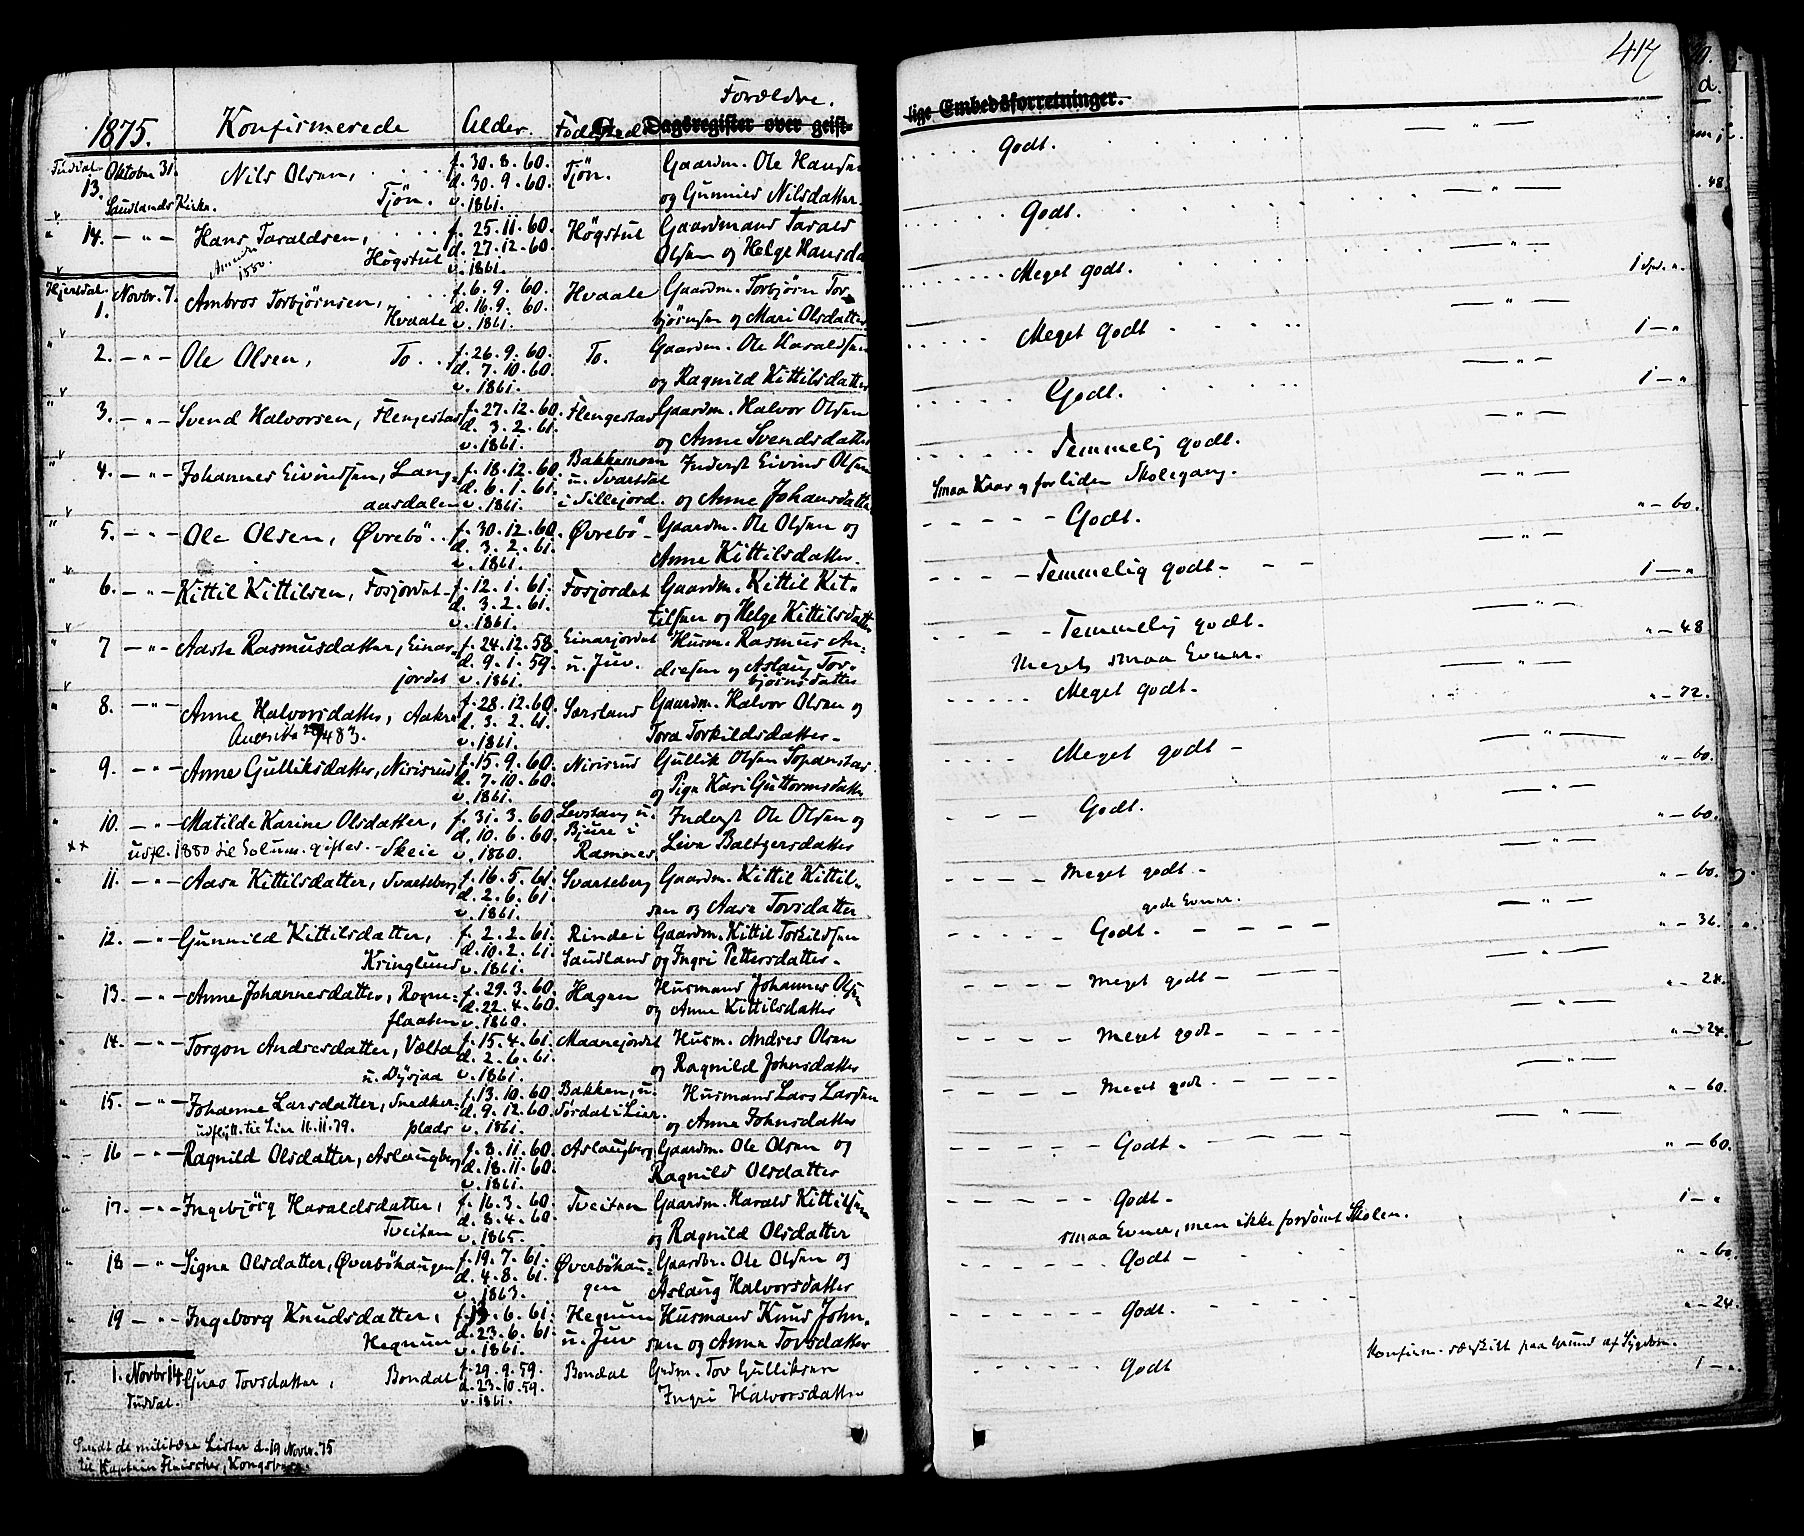 417
Forældre.
1875. Konfirmerede Alder. Fødested C. Dagsregister over geist- lige Embedsforretninger.
Tuddal Oktober 31. f. 30. 8. 60. Tjön. Gaardm. Ole Hansen Godt. — " —
13. Nils Olsen, d. 30. 9. 60. og Gunnild Nilsdatter
Saudlands Kirke. Tjön. v. 1861.
" 14. — " — Hans Taraldsen, f. 25. 11. 60. Högstul Gaardmand Tarald Godt. — " —
d. 27. 12. 60. Olsen og Helge Hansda
1880. Högstul v. 1861.
Hjertdal Novbr. 7. f. 6. 9. 60. Hvaale Gaardm. Torbjørn Tor- Meget godt. — " — 1 Spd. ".
1. Ambros Torbjørnsen, d. 16. 9. 60. bjørnsen og Mari Olsdatter
Hvaale v. 1861.
" 2. — " — Ole Olsen, To. f. 26. 9. 60. To. Gaardm. Ole Haraldsen Meget godt — " — 1 — "
d. 7. 10. 60. og Ragnild Kittilsdatter
v. 1861.
" 3. — " — Svend Halvorsen, Flengestad f. 27. 12. 60. Flengestad Gaardm. Halvor Olsen Godt. — " — 1 — "
d. 3. 2. 61. og Anne Svendsdatter
v. 1861.
" 4. — " — Johannes Eivindsen, Lang- f. 18. 12. 60. Bakkemoen Inderst Eivind Olsen Temmelig godt. — " —
d. 6. 1. 61. u. Svartdal
aasdalen v. 1861. i Sillejord. og Anne Johansdatter Smaa Kaar og for liden Skolegang.
" 5. — " — Ole Olsen, Øvrebö f. 30. 12. 60. Øvrebö Gaardm. Ole Olsen og Godt. — " — " — 60.
d. 3. 2. 61. Anne Kittilsdatter.
v. 1861.
" 6. — " — Kittil Kittilsen, Fosjordet f. 12. 1. 61. Fosjordet Gaardm. Kittil Kit- Temmelig godt — " — 1 — "
d. 3. 2. 61. tilsen og Helge Kittilsdatter
v. 1861.
" 7 — " — Aaste Rasmusdatter, Einar- f. 24. 12. 58. Einarjordet Husm. Rasmus An- Temmelig godt. — " — " — 48
d. 9. 1. 59. u. Juv. dresen og Aslaug Tor-
jordet v. 1861. bjørnsdatter Meget smaa Evner.
" 8. — " — Anne Halvorsdatter, Aakre f. 28. 12. 60. Særsland Gaardm. Halvor Olsen og Meget godt — " — " — 72.
d. 3. 2. 61. Tora Torkildsdatter
v. 1861.
" 9. — " — Anne Gulliksdatter, Nirisrud f. 15. 9. 60. Nirisrud Gullik Olsen Meget godt — " — " — 60.
d. 7. 10. 60. og Pige Kari Guttormsdatter
v. 1861.
" 10. — " — Matilde Karine Olsdatter, f. 31. 3. 60. Levstang u. Inderst Ole Olsen og Godt. — " — " — 60.
d. 10. 6. 60. Bjure i
×× udfl. 1880 til Solum. giftet. Skeie v. 1860. Ramnes Live Baltzersdatter
" 11. — " — Aase Kittilsdatter, Svarteberg f. 16. 5. 61. Svarteberg Gaardm. Kittil Kittil- Meget godt — " — " — 60.
d. 2. 6. 61. sen og Aase Tovsdatter gode Evner.
v. 1861.
" 12. — " — Gunnild Kittilsdatter, f. 2. 2. 61. Rinde i Gaardm. Kittil Torkildsen Godt. — " — " — 36.
d. 10. 2. 61.
Kringlund v. 1861. Saudland og Ingri Pettersdatter
" 13. — " — Anne Johannesdatter, Rogne- f. 29. 3. 60. Hagen Husmand Johannes Olsen Meget godt — " — " — 24.
d. 22. 4. 60. og Anne Kittilsdatter
flaaten v. 1860.
" 14. — " — Torgon Andresdatter, f. 15. 4. 61. Maanejordet Husm. Andres Olsen Meget godt — " — " — 24.
d. 2. 6. 61. og Ragnild Johnsdatter
u. Dysjaa v. 1861.
" 15. — " — Johanne Larsdatter, Snedker- f. 13. 10. 60. Bakken, u. Husmand Lars Larsen Meget godt. — " — " — 60.
d. 9. 12. 60. Sørdal i Lier. og Anne Johnsdatter
udflytt. til Lier 11. 11. 79. plads v. 1861.
" 16 — " — Ragnild Olsdatter, Aslaugberg f. 8. 11. 60. Aslaugberg Gaardm. Ole Olsen og Godt — " — " — 60.
d. 18. 11. 60. Ragnild Olsdatter
v. 1861.
" 17. — " — Ingebjörg Haraldsdatter, f. 16. 3. 60. Tveiten Gaardm. Harald Kittilsen Godt 1 — "
d. 8. 4. 60.
Tveiten v. 1865. og Ragnild Olsdatter smaa Evner, men ikke forsömt Skolen.
" 18 — " — Signe Olsdatter, Øverböhaugen f. 19. 7. 61. Øverböhau- Gaardbr. Ole Olsen og Godt " — 60.
d. 4. 8. 61. gen Aslaug Halvorsdatter
v. 1863.
" 19 — " — Ingeborg Knudsdatter, 6. 61. Hegnum Husmand Knud John- Godt. " — 24.
d. 23. 6. 61.
Hegnum v. 1861. u. Juv sen og Anne Tovsdatter
T. 1. Novbr 14 Guro Tovsdatter, Bondal f. 29. 9. 59. Bondal Grdm. Tov Gulliksen Godt Konfirm. særskilt paa Grund af Sygdom. 1 — ".
d. 23. 10. 59.
Tuddal. v. 1861. Ingri Halvorsdatter
Sendt de militære Lister d. 19 Novbr. 75
til Kaptein Fleischer, Kongsberg.